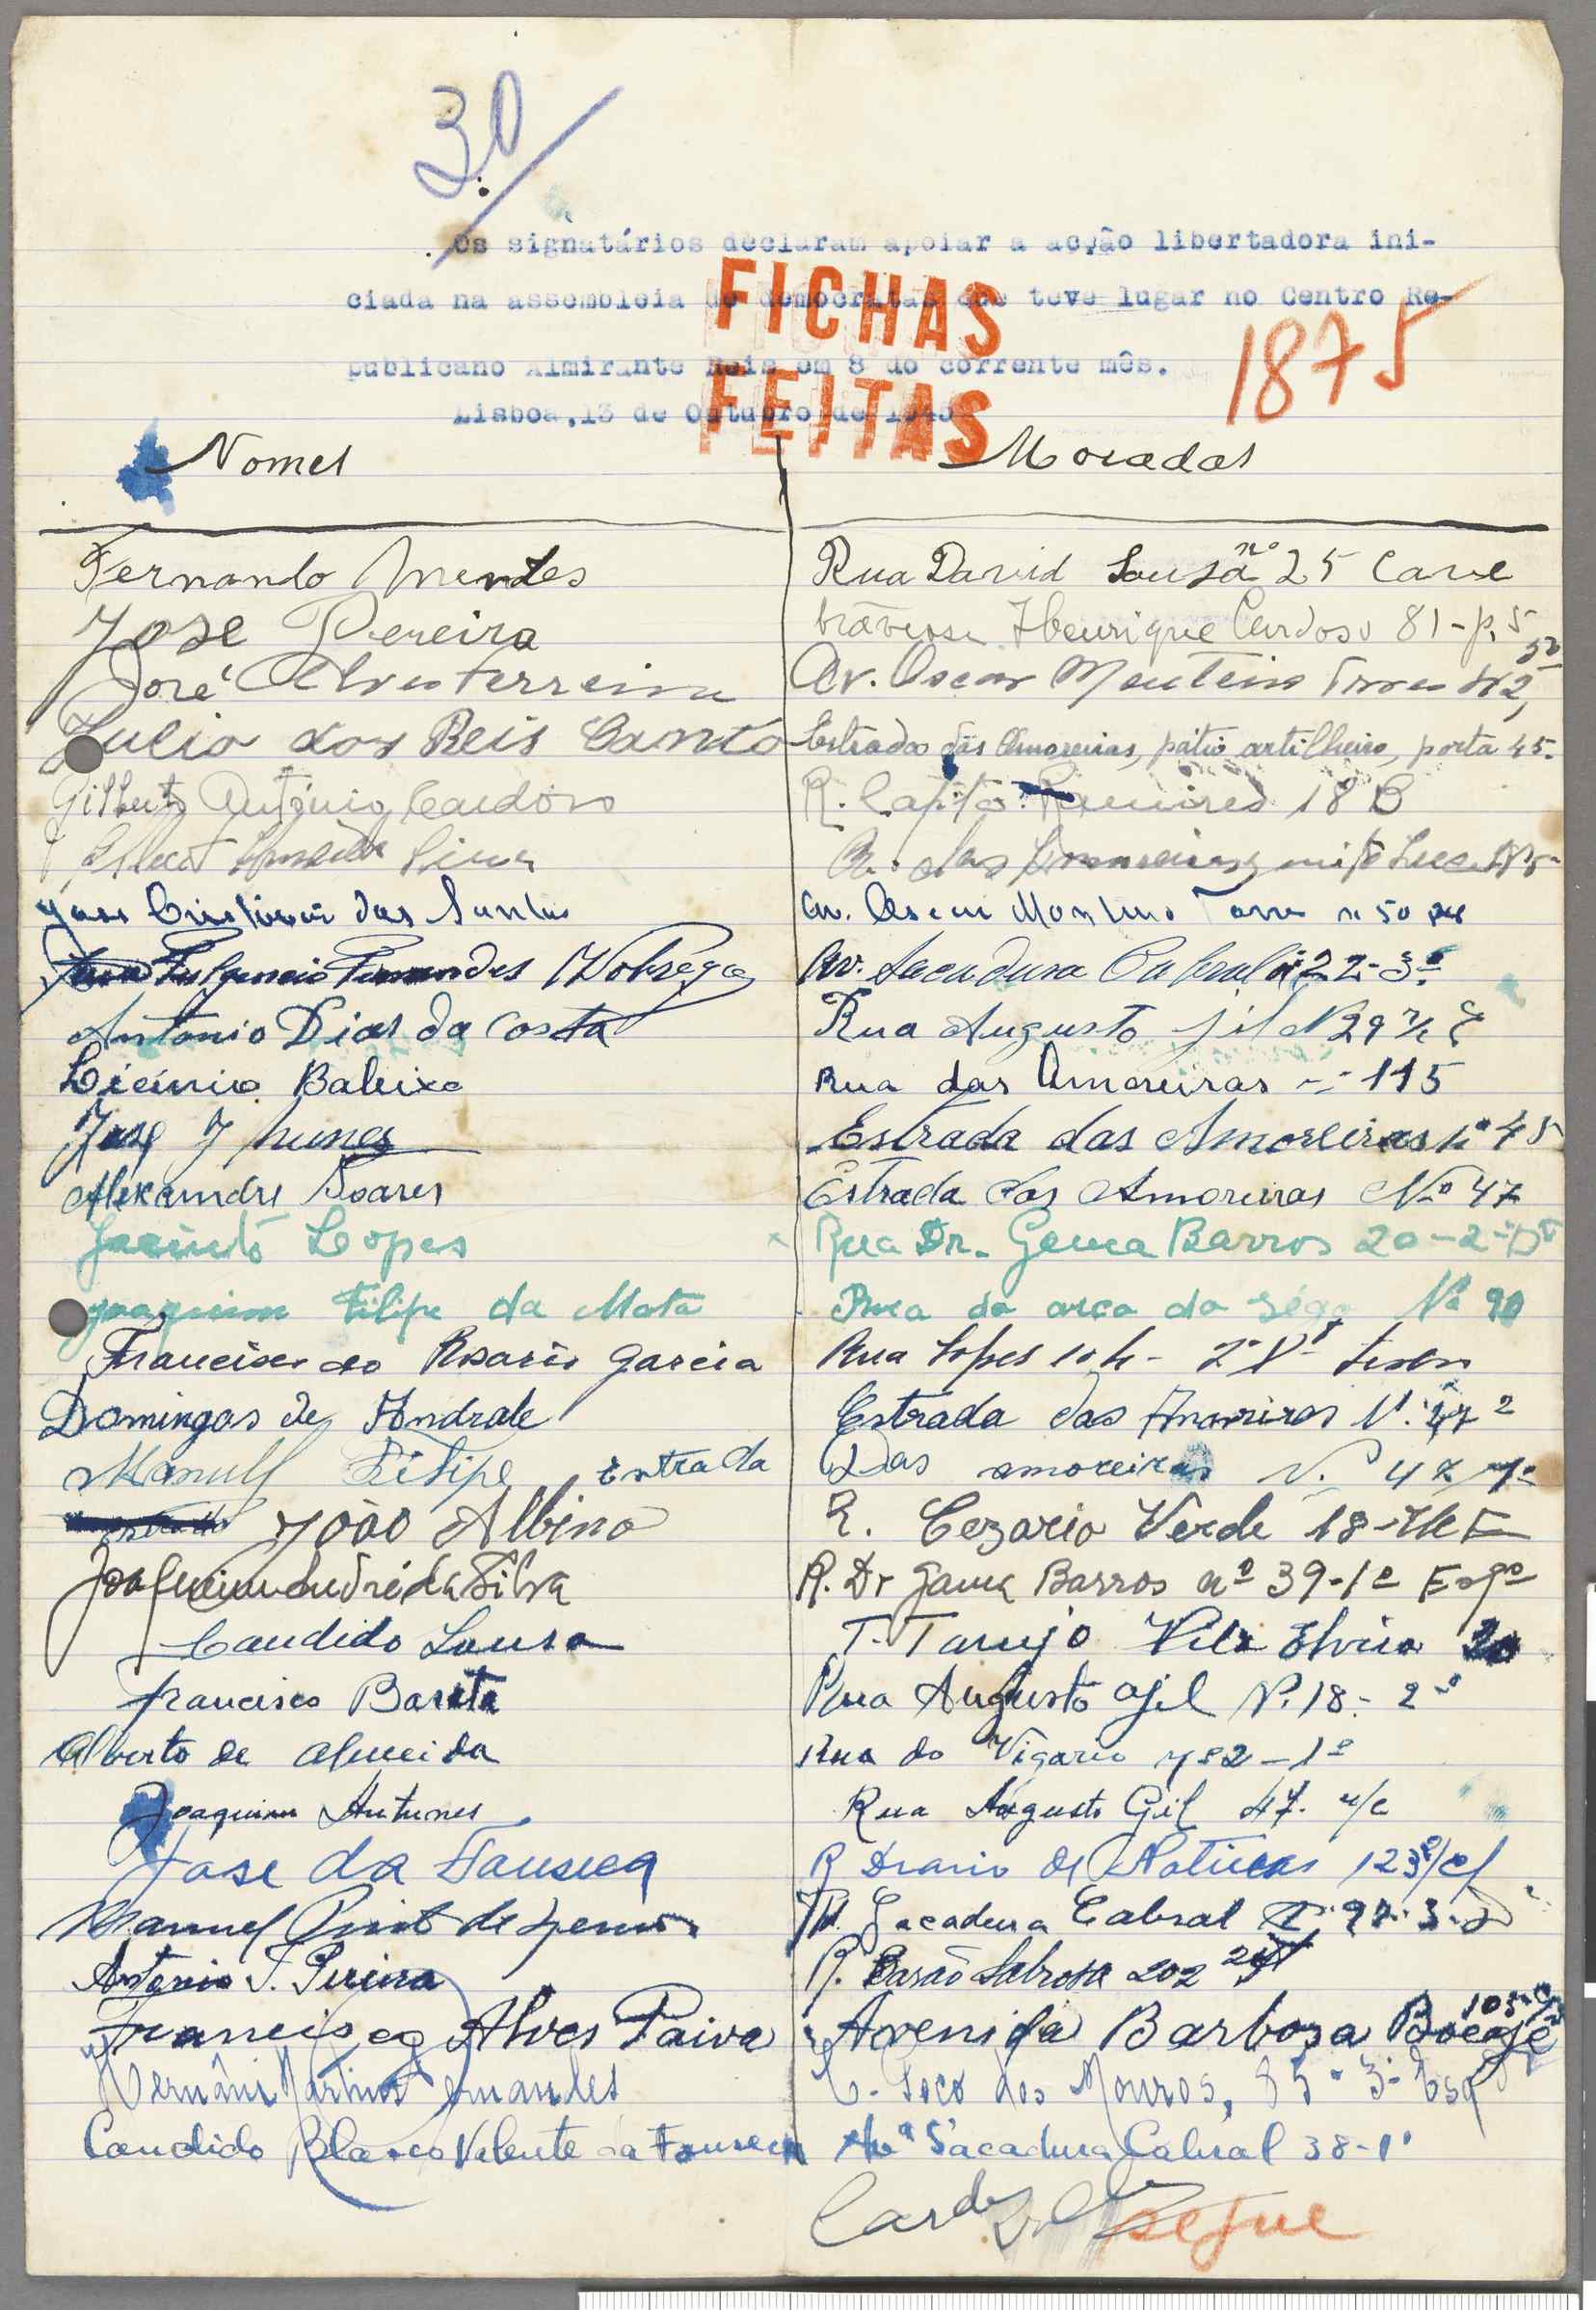 30
Os signatários declaram apoiar a acção libertadora ini-
ciada na assembleia de democratas que teve lugar no Centro Re-
publicano Almirante Reis em 8 do corrente mês.
Lisboa,13 de Outubro de 1945
FICHAS
FEITAS
1875
Nomes Moradas
Fernando Mendes Rua David Sousa nº 25 Cave
Jose Pereira travessa Henrique Cardoso 81-p. 5
José Alves Ferreira Av. Oscar Monteiro Torres
Julio dos Reis Canto Estrada das Amoreiras, pátio artilheiro, porta 45.
Gilberto António Cardoso R. Capitão Ramires 18 B
das
dos Santos Av. Oscar Monteiro Torres n 50
Fulgencio Fernandes Nobrega Av. Sacadura Cabral nº 22-3º
Antonio Dias da Costa Rua Augusto gil N 29
Licinio Baleixo Rua das Amoreiras 115
José J nunes Estrada das Amoreiras nº 45
Alexandre Soares Estrada das Amoreiras Nº 47
Jacinto Lopes Rua Dr. Gama Barros 20-2-Dt
Joaquim Filipe da Mata Rua do arco do sego Nº 90
Francisco do Rosario Garcia Rua Lopes
Domingos de Andrade Estrada das Amoreiras
Manuel Filipe Estrada Das amoreiras N.º 47
João Albino R. Cezario Verde 18
Joaquim André da Silva R. Dr Gama Barros nº 39-1º Esqº
Candido Sousa T. Tarujo Vila Elvira 20
francisco Barata Rua Augusto Gil N. 18-2º
Alberto de Almeida Rua do Vigario 782-1º
Joaquim Antunes Rua Augusto Gil 47. r/c
Jose da Fonseca R Diario de Noticias 123
Manuel Sacadura Cabral 97-3-D
Antonio T. Pereira R. Barão Sabrosa 202
Francisco Alves Paiva Avenida Barbosa Bocage 103
Hernâni Martins Fernandes C. Poço dos Mouros, 85-3º Esq
Candido Blasco Valente da Fonseca Avª Sacadura Cabral 38-1º
segue